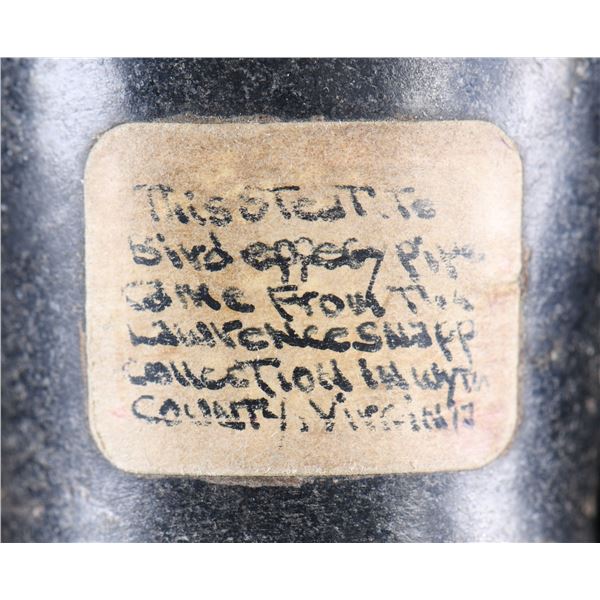 This Steatite
Bird effegy Pipe
Came From The
Lawrence Snapp
Collection in Wyth
County, Virginia